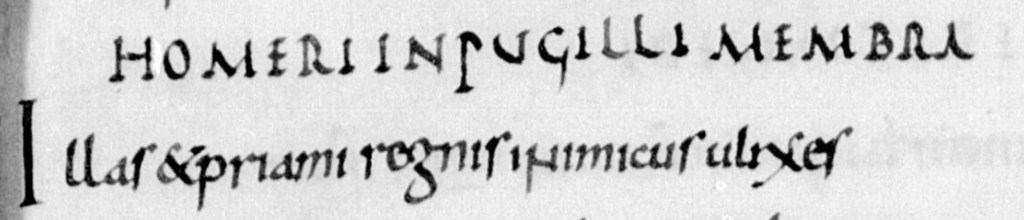 HOMERI IN PUGILLI MEMBRA
Illas & priami regnis inimicus ulixes